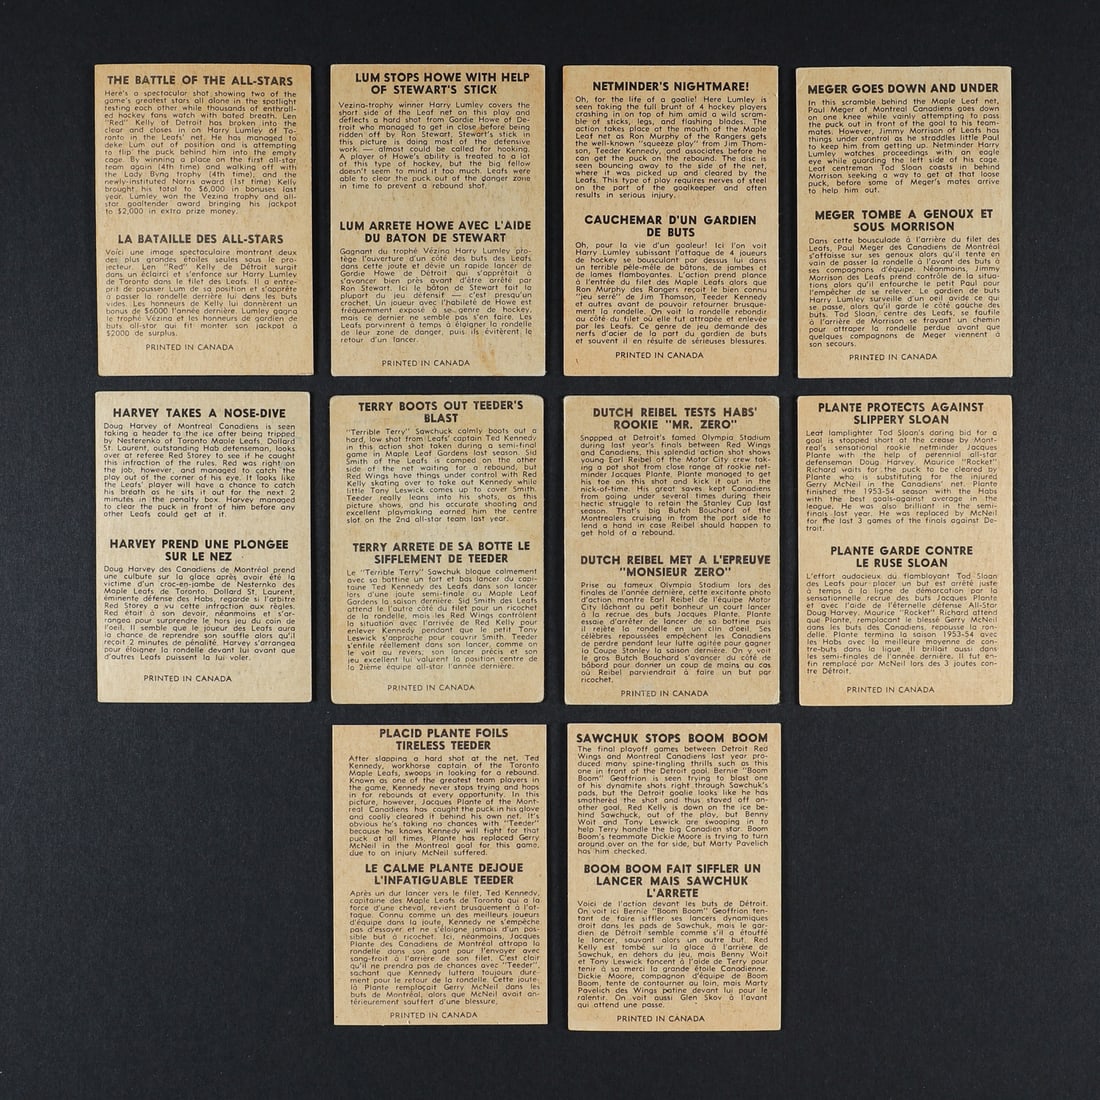 THE BATTLE OF THE ALL-STARS
Here's a spectacular shot showing two of the
game's greatest stars all alone in the spotlight
testing each other while thousands of enthrall-
ed hockey fans watch with bated breath. Len
"Red" Kelly of Detroit has broken into the
clear and closes in on Harry Lumley of To-
ronto in the Leafs' net. He has managed to
deke Lum out of position and is attempting
to flip the puck behind him into the empty
cage. By winning a place on the first all-star
team again (4th time) and walking off with
the Lady Byng trophy (4th time), and the
newly-instituted Norris award (1st time) Kelly
brought his total to $6,000 in bonuses last
year. Lumley won the Vezina trophy and all-
star goaltender award bringing his jackpot
to $2,000 in extra prize money.
LA BATAILLE DES ALL-STARS
Voici une image spectaculaire montrant deux
des plus grandes étoiles seules sous le pro-
jecteur. Len "Red" Kelly de Détroit surgit
dans un éclairci et s'enfonce sur Harry Lumley
de Toronto dans le filet des Leafs. Il a entre-
prit de pousser Lum de sa position et s'apprête
à passer la rondelle derrière lui dans les buts
vides. Les honneurs de Kelly lui donnèrent un
bonus de $6000 l'année dernière. Lumley gagna
le trophy Vézina et les honneurs de gardien de
buts all-star qui fit monter son jackpot à
$2000 de surplus.
PRINTED IN CANADA
LUM STOPS HOWE WITH HELP
OF STEWART'S STICK
Vezina-trophy winner Harry Lumley covers the
short side of the Leaf net on this play and
deflects a hard shot from Gordie Howe of De-
troit who managed to get in close before being
ridden off by Ron Stewart. Stewart's stick in
this picture is doing most of the defensive
work — almost could be called for hooking.
A player of Howe's ability is treated to a lot
of this type of hockey, but the big fellow
doesn't seem to mind it too much. Leafs were
able to clear the puck out of the danger zone
in time to prevent a rebound shot.
LUM ARRETE HOWE AVEC L'AIDE
DU BATON DE STEWART
Gagnant du trophé Vézing Harry Lumley pro-
tège l'ouverture d'un côté des buts des Leafs
dans cette joute et dévie un rapide lancer de
Gorde Howe de Détroit qui s'apprêtait à
s'avancer bien près avant d'être arrêté par
Ron Stewart. Ici le bâton de Stewart fait la
plupart du jeu défensif — c'est presqu'un
crochet. Un joueur avec l'habileté de Howe est
fréquement exposé à se genre de hockey,
mais ce dernier ne semble pas s'en faire. Les
Leafs parvinrent à temps à éloigner la rondelle
de leur zone de danger, puis ils évitèrent le
retour d'un lancer.
PRINTED IN CANADA
NETMINDER'S NIGHTMARE!
Oh, for the life of a goalie! Here Lumley is
seen taking the full brunt of 4 hockey players
crashing in on top of him amid a wild scram-
ble of sticks, legs, and flashing blades. The
action takes place at the mouth of the Maple
Leaf net as Ron Murphy of the Rangers gets
the well-known "squeeze play" from Jim Thom-
son, Teeder Kennedy, and associates before he
can get the puck on the rebound. The disc is
seen bouncing away to the side of the net,
where it was picked up and cleared by the
Leafs. This type of play requires nerves of steel
on the part of the goalkeeper and often
results in serious injury.
CAUCHEMAR D'UN GARDIEN
DE BUTS
Oh, pour la vie d'un goaleur! Ici l'on voit
Harry Lumley subissant l'attaque de 4 joueurs
de hockey se bousculant par dessus lui dans
un terrible pèle-mêle de bâtons, de jambes et
de lames flamboyantes. L'action prend place
à l'entrée du filet des Maple Leafs alors que
Ron Murphy des Rangers reçoit le bien connu
"jeu serré" de Jim Thomson, Teeder Kennedy
et autres avant de pouvoir retourner brusque-
ment la rondelle. On voit la rondelle rebondir
au côté du filet où elle fut attrapée et enlevée
par les Leafs. Ce genre de jeu demande des
nerfs d'acier de la part du gardien de buts
et souvent il en résulte de sérieuses blessures.
PRINTED IN CANADA
MEGER GOES DOWN AND UNDER
In this scramble behind the Maple Leaf net,
Paul Meger of Montreal Canadiens goes down
on one knee while vainly attempting to pass
the puck out in front of the goal to his team-
mates. However, Jimmy Morrison of Leafs has
things under control as he straddles little Paul
to keep him from getting up. Netminder Harry
Lumley watches proceedings with an eagle
eye while guarding the left side of his cage.
Leaf centreman Tod Sloan coasts in behind
Morrison seeking a way to get at that loose
puck, before some of Meger's mates arrive
to help him out.
MEGER TOMBE A GENOUX ET
SOUS MORRISON
Dans cette bousculade à l'arrière du filet des
Leafs, Paul Meger des Canadiens de Montréal
s'affaisse sur ses genoux alors qu'il tente en
vain de passer la rondelle à l'avant des buts à
ses compagnons d'équipe. Néanmoins, Jimmy
Morrison des Leafs prend contrôle de la situa-
tions alors qu'il enfourche le petit Paul pour
l'empêcher de se relever. Le gardien de buts
Harry Lumley surveille d'un oeil avide ce qui
se passe, alors qu'il garde le côté gauche des
buts. Tod Sloan, centre des Leafs, se faufile
à l'arrière de Morrison se frayant un chemin
pour attraper la rondelle perdue avant que
quelques compagnons de Meger viennent à
son secours.
PRINTED IN CANADA
HARVEY TAKES A NOSE-DIVE
Doug Harvey of Montreal Canadiens is seen
taking a header to the ice after being tripped
by Nesterenko of Toronto Maple Leafs. Dollard
St. Laurent, outstanding Hab defenseman, looks
over at referee Red Storey to see if he caught
this infraction of the rules. Red was right on
the job, however, and managed to catch the
play out of the corner of his eye. It looks like
the Leafs' player will have a chance to catch
his breath as he sits it out for the next 2
minutes in the penalty box. Harvey managed
to clear the puck in front of him before any
other Leafs could get at it.
HARVEY PREND UNE PLONGEE
SUR LE NEZ
Doug Harvey des Canadiens de Montréal prend
une culbute sur la glace après avoir été la
victime d'un croc-en-jambe de Nesterenko des
Maple Leafs de Toronto. Dollard St. Laurent,
éminente défense des Habs, regarde si l'arbitre
Red Storey a vu cette infraction aux règles.
Red était à son devoir, néanmoins et s'ar-
rangea pour surprendre le hors jeu du coin de
l'oeil. Il semble que le joueur des Leafs aura
la chance de reprendre son souffle alors qu'il
reçoit 2 minutes de pénalité. Harvey s'arrangea
pour éloigner la rondelle devant lui avant que
d'autres Leafs puissent la lui voler.
PRINTED IN CANADA
TERRY BOOTS OUT TEEDER'S
BLAST
"Terrible Terry" Sawchuck calmly boots out a
hard, low shot from Leafs' captain Ted Kennedy
in this action shot taken during a semi-final
game in Maple Leaf Gardens last season. Sid
Smith of the Leafs is camped on the other
side of the net waiting for a rebound, but
Red Wings have things under control with Red
Kelly skating over to take out Kennedy while
little Tony Leswick comes up to cover Smith.
Teeder really leans into his shots, as this
picture shows, and his accurate shooting and
excellent playmaking earned him the centre
slot on the 2nd all-star team last year.
TERRY ARRETE DE SA BOTTE LE
SIFFLEMENT DE TEEDER
Le "Terrible Terry" Sawchuk bloque calmement
avec sa bottine un fort et bas lancer du capi-
taine Ted Kennedy des Leafs dans son lancer
lors d'une joute semi-finale au Maple Leaf
Gardens la saison dernière. Sid Smith des Leafs
attend à l'autre côté du filet pour un ricochet
de la rondelle, mais les Red Wings contrôlent
la situation avec l'arrivée de Red Kelly pour
enlever Kennedy pendant que le petit Tony
Leswick s'approche pour couvrir Smith. Teeder
se enfile réellement dans son lancer, comme on
le voit au revers; son lancer précis et son
jeu excellent lui valurent la position centre de
la 2ième équipe all-star l'année dernière.
PRINTED IN CANADA
DUTCH REIBEL TESTS HABS'
ROOKIE "MR. ZERO"
Snapped at Detroit's famed Olympia Stadium
during last year's finals between Red Wings
and Canadiens, this splendid action shot shows
young Earl Reibel of the Motor City crew tak-
ing a pot shot from close range at rookie net-
minder Jacques Plante. Plante managed to get
his toe on this shot and kick it out in the
nick-of-time. His great saves kept Canadiens
from going under several times during their
hectic struggle to retain the Stanley Cup last
season. That's big Butch Bouchard of the
Montrealers cruising in from the port side to
lend a hand in case Reibel should happen to
get hold of a rebound.
DUTCH REIBEL MET A L'EPREUVE
"MONSIEUR ZERO"
Prise au fameux Olympia Stadium lors des
finales de l'année dernière, cette excitante photo
d'action montre Earl Reibel de l'équipe Motor
City lâchant au petit bonheur un court lancer
à la recrue des buts Jacques Plante. Plante
essaie d'arrêter le lancer de sa bottine puis
il rejète la rondelle en un clin d'oeil. Ses
célèbres repoussées empêchent les Canadiens
de perdre pendant leur lutte agitée pour gagner
la Coupe Stanley la saison dernière. On y voit
le gros Butch Bouchard s'avancer du côté de
bâbord pour donner un coup de mains au cas
où Reibel parviendrait à faire un but par
ricochet.
PRINTED IN CANADA
PLANTE PROTECTS AGAINST
SLIPPERY SLOAN
Leaf lamplighter Tod Sloan's daring bid for a
goal is stopped short at the crease by Mont-
real's sensational rookie netminder Jacques
Plante with the help of perennial all-star
defenseman Doug Harvey. Maurice "Rocket"
Richard waits for the puck to be cleared by
Plante who is substituting for the injured
Gerry McNeil in the Canadiens' net. Plante
finished the 1953-54 season with the Habs
with the best goals-against average in the
league. He was also brilliant in the semi-
finals last year. He was replaced by McNeil
for the last 3 games of the finals against De-
troit.
PLANTE GARDE CONTRE
LE RUSE SLOAN
L'effort audocieux du flamboyant Tod Sloan
des Leafs pour placer un but est arrêté juste
à temps à la ligne de démarcation par la
sensationnelle recrue des buts Jacques Plante
et avec l'aide de l'éternelle défense All-Star
Doug Harvey. Maurice "Rocket" Richard attend
que Plante, remplacant le blessé Gerry McNeil
dans les buts des Canadiens, repousse la ron-
delle. Plante termina la saison 1953-54 avec
les Habs avec la meilleure moyenne de con-
tre-buts dans la ligue. Il brillait aussi dans
les semi-finales de l'année dernière. Il fut en-
fin remplacé par McNeil lors des 3 joutes con-
tre Détroit.
PRINTED IN CANADA
PLACID PLANTE FOILS
TIRELESS TEEDER
After slapping a hard shot at the net, Ted
Kennedy, workhorse captain of the Toronto
Maple Leafs, swoops in looking for a rebound.
Known as one of the greatest team players in
the game, Kennedy never stops trying and hops
in for rebounds at every opportunity. In this
picture, however, Jacques Plante of the Mont-
real Canadiens has caught the puck in his glove
and coolly cleared it behind his own net. It's
obvious he's taking no chances with "Teeder"
because he knows Kennedy will fight for that
puck at all times. Plante has replaced Gerry
McNeil in the Montreal goal for this game,
due to an injury McNeil suffered.
LE CALME PLANTE DEJOUE
L'INFATIGUABLE TEEDER
Après un dur lancer vers le filet, Ted Kennedy,
capitaine des Maple Leafs de Toronto qui a la
force d'une cheval, revient brusquement à l'at-
taque. Connu comme un des meilleurs joueurs
d'équipe dans la joute, Kennedy ne s'empêche
pas d'essayer et ne s'éloigne jamais d'un pos-
sible but à ricochet. Ici, néanmoins, Jacques
Plante des Canadiens de Montréal attrapa la
rondelle dans son gant pour l'envoyer avec
sang-froid à l'arrière de son filet. C'est clair
qu'il ne prendra pas de chances avec "Teeder",
sachant que Kennedy luttera toujours dure-
ment pour le retour de la rondelle. Cette joute
là Plante remplaçait Gerry McNeil dans les
buts de Montréal, alors que McNeil avait an-
térieurement souffert d'une blessure.
PRINTED IN CANADA
SAWCHUK STOPS BOOM BOOM
The final playoff games between Detroit Red
Wings and Montreal Canadiens last year pro-
duced many spine-tingling thrills such as this
one in front of the Detroit goal. Bernie "Boom
Boom" Geoffrion is seen trying to blast one
of his dynamite shots right through Sawchuk's
pads, but the Detroit goalie looks like he has
smothered the shot and thus staved off an-
other goal. Red Kelly is down on the ice be-
hind Sawchuk, out of the play, but Benny
Woit and Tony Leswick are swooping in to
help Terry handle the big Canadien star. Boom
Boom's teammate Dickie Moore is trying to turn
around over on the far side, but Marty Pavelich
has him checked.
BOOM BOOM FAIT SIFFLER UN
LANCER MAIS SAWCHUK
L'ARRETE
Voici de l'action devant les buts de Détroit.
On voit ici Bernie "Boom Boom" Geoffrion ten-
tant de faire siffler ses lancers dynamiques
droit dans les pads de Sawchuk, mais le gar-
dien de Détroit semble comme s'il a étouffé
le lancer, sauvant alors un autre but. Red
Kelly est tombé sur la glace à l'arrière de
Sawchuk, en dehors du jeu, mais Benny Woit
et Tony Leswick foncent à l'aide de Terry pour
tenir à sa merci la grande étoile Canadienne.
Dickie Moore, compagnon d'équipe de Boom
Boom, tente de contourner au loin, mais Marty
Pavelich des Wings patine devant lui pour le
ralentir. On voit aussi Glen Skov à l'avant
qui attend une passe.
PRINTED IN CANADA